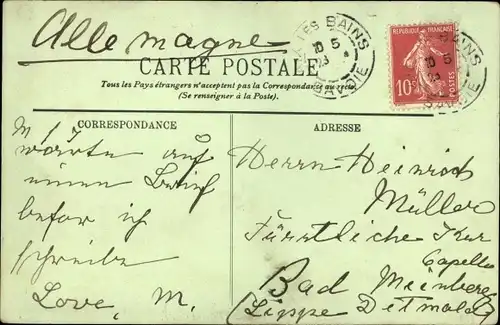 Allemagne
LES BAINS
10 5
SAVOIE
REPUBLIQUE FRANÇAISE
10c
POSTES
CARTE POSTALE
Tous les Pays étrangers n'acceptent pas la Correspondance au recto.
(Se renseigner à la Poste).
CORRESPONDANCE
warte auf
einen Brief
befor ich
schreibe
Love, M.
ADRESSE
Herrn Heinrich
Müller
Fürstliche Kur
Capelle
Bad Meinberg
(Lippe Detmold)